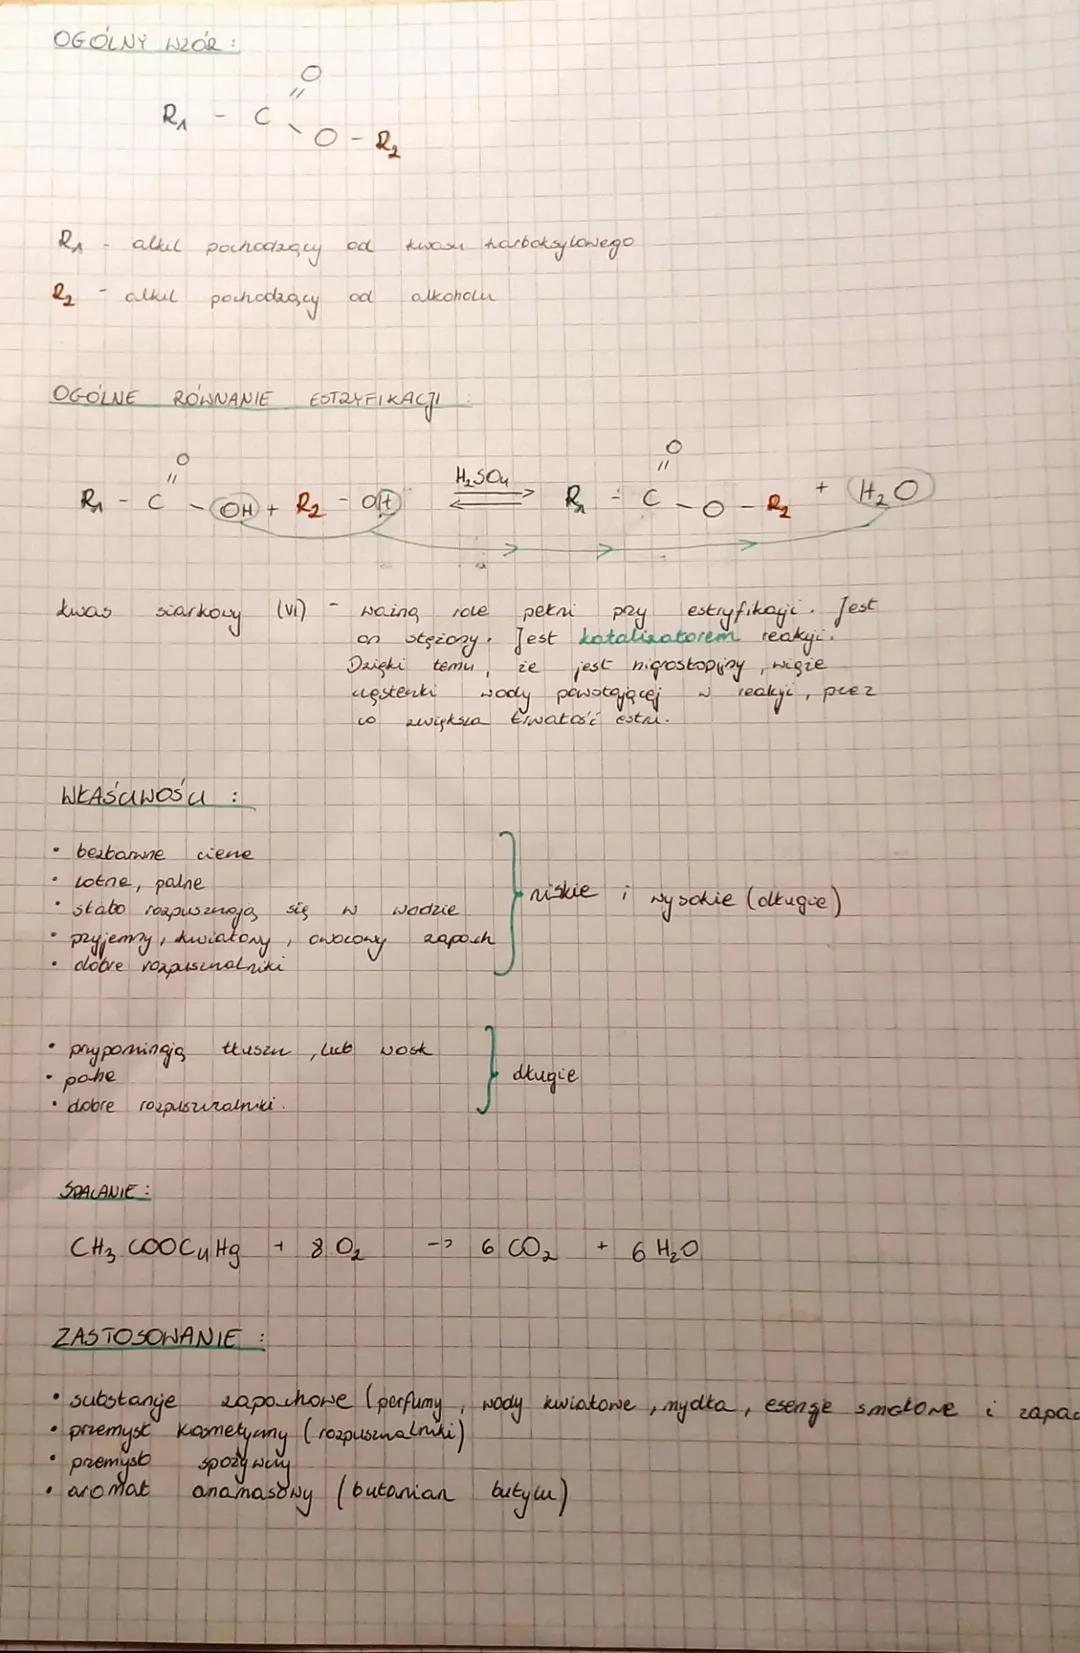 OGÓLNY WZÓR :
O
R₁ - C
O - R₂
R₁ - alkil pochodzący od kwasu karboksylowego
R₂ - alkil pochodzący od alkoholu
OGÓLNE RÓWNANIE ESTRYFIKACJI :
O O
R₁ - C - OH + R₂ - OH H₂SO₄ ⇌ R₁ - C - O - R₂ + H₂O
kwas siarkowy (VI) - ważną role pełni przy estryfikacji. Jest
on stężony. Jest katalizatorem reakcji.
Dzięki temu, że jest higroskopijny, wiąże
cząsteczki wody powstającej w reakcji, przez
co zwiększa trwałość estru.
WŁAŚCIWOŚCI :
• bezbarwne ciecze
• lotne, palne
• słabo rozpuszczają się w wodzie
• przyjemny, kwiatowy, owocowy zapach
• dobre rozpuszczalniki
niskie i wysokie (długie)
• przypominają tłuszcz, lub wosk
• palne
• dobre rozpuszczalniki.
długie
SPALANIE :
CH₃COOC₄H₉ + 8 O₂ -> 6 CO₂ + 6 H₂O
ZASTOSOWANIE :
• substancje zapachowe (perfumy, wody kwiatowe, mydła, esencje smakowe i zapac
• przemysł kosmetyczny (rozpuszczalniki)
• przemysł spożywczy
• aromat ananasowy (butanian butylu)